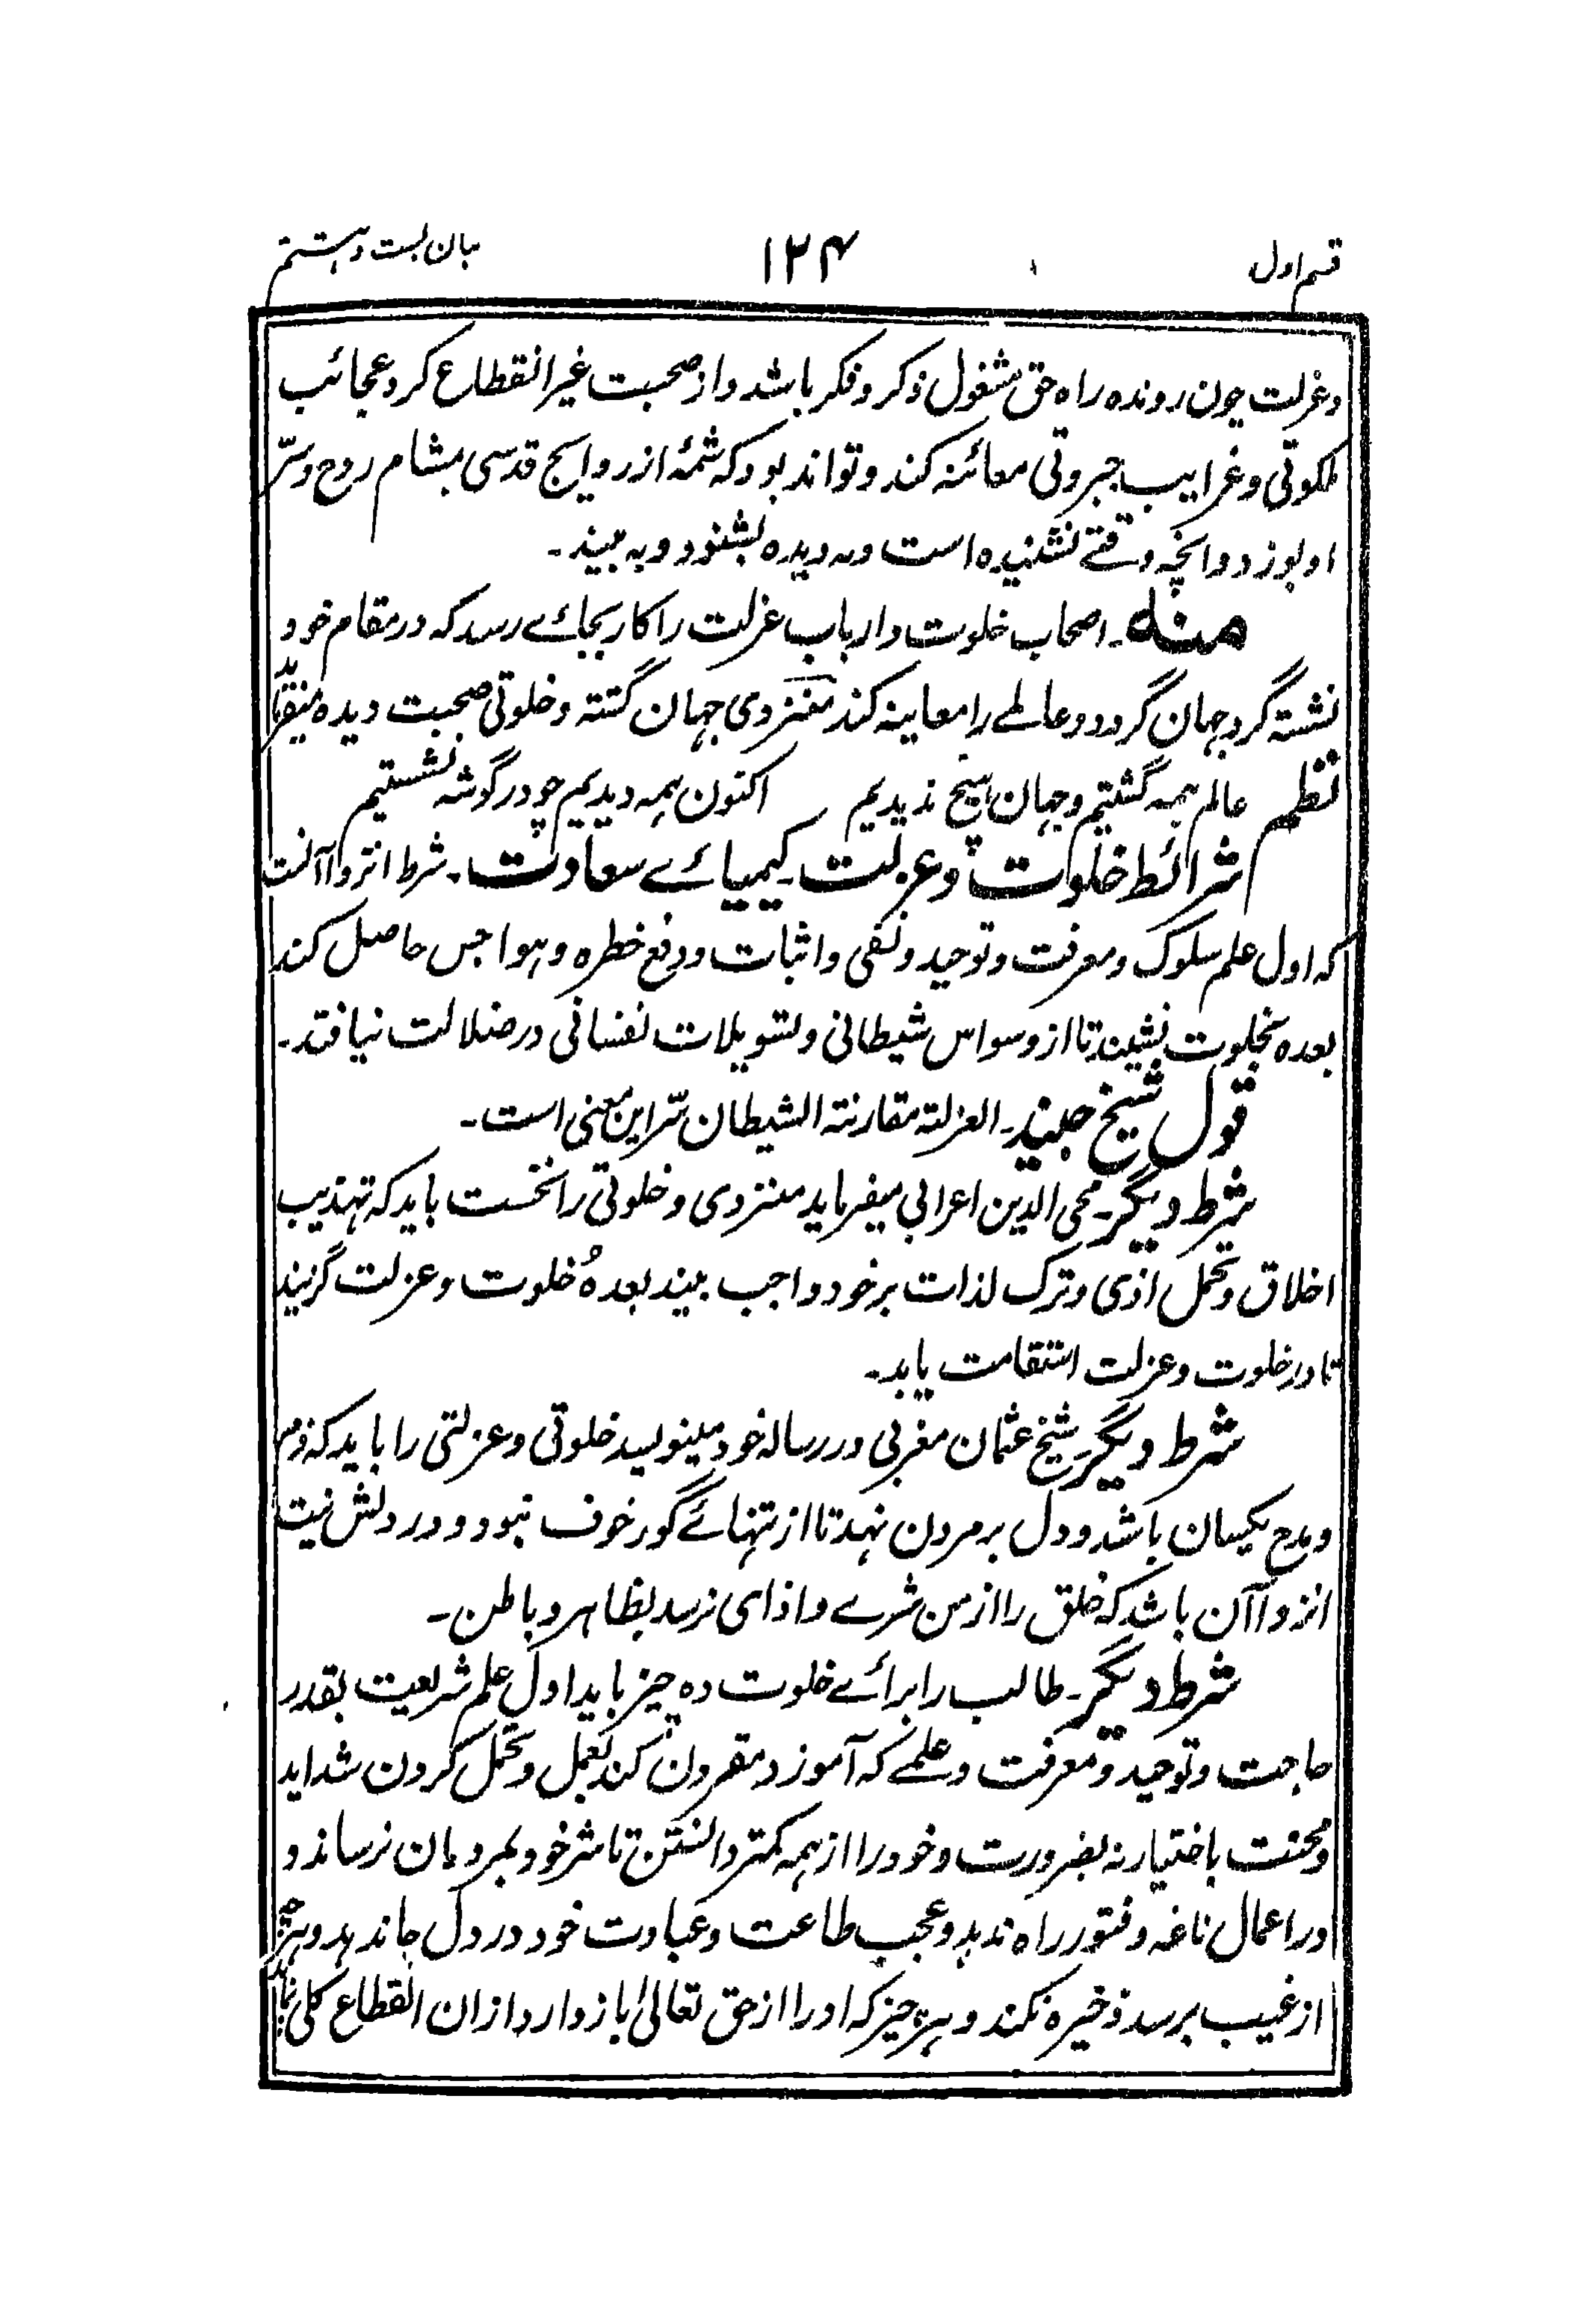 قسم اول
۱۲۴
بیان بست و ہشتم
وعزلت چون روندہ راہ حق مشغول ذکر و فکر باشد و از صحبت غیر انقطاع کرد عجائب
ملکوتی و غرایب جبروتی معائنہ کند و تواند بود کہ شمۂ از روایح قدسی بمشام روح و سرّ
او بوزد و انچہ وقتے نشنیدہ است و نہ دیدہ بشنود و بہ بیند۔
منہ۔ اصحاب خلوت و ارباب عزلت را کار بجائے رسد کہ در مقام خود
نشستہ گرد جہان گردد و عالمے را معاینہ کند منزوی جہان گشتہ و خلوتی صحبت دیدہ
نظم عالم ہمہ گشتیم و جہان ہیچ ندیدیم اکنون ہمہ دیدیم چو در گوشہ نشستیم
شرائط خلوت و عزلت۔ کیمیائے سعادت۔ شرط انزوا آنست
کہ اول علم سلوک و معرفت و توحید و نفی و اثبات و دفع خطرہ و ہواجس حاصل کند
بعدہ بخلوت نشیند تا از وسواس شیطانی و تسویلات نفسانی در ضلالت نیافتد۔
قول شیخ جنید۔ العزلتہ مقارنتہ الشیطان سّر این معنی است۔
شرط دیگر۔ محی الدین اعرابی میفرماید منزوی و خلوتی را نخست باید کہ تہذیب
اخلاق و تحمل اذی و ترک لذات بر خود واجب بیند بعدہٗ خلوت و عزلت گزیند
تا در خلوت و عزلت استقامت یابد۔
شرط دیگر شیخ عثمان مغربی در رسالہ خود مینویسد خلوتی و عزلتی را باید کہ ذم
و مدح یکسان باشد و دل بر مردن نہد تا از تنہائے گور خوف نبود و در دلش نیت
انزوا آن باشد کہ خلق را از من شرے و اذای نرسد بظاہر و باطن۔
شرط دیگر۔ طالب را برائے خلوت دہ چیز باید اول علم شریعت بقدر
حاجت و توحید و معرفت و علمے کہ آموزد مقرون کند بعمل و تحمل کردن شداید
و محنت باختیار نہ بضرورت و خود را از ہمہ کمتر دانستن تا شر خود بمردمان نرساند و
در اعمال ناغہ و فتور راہ ندہد و عجب طاعت و عبادت خود در دل جا ندہد و ہرچہ
از غیب برسد ذخیرہ نکند و ہر چیز کہ او را از حق تعالیٰ باز دارد ازان انقطاع کلی نماید